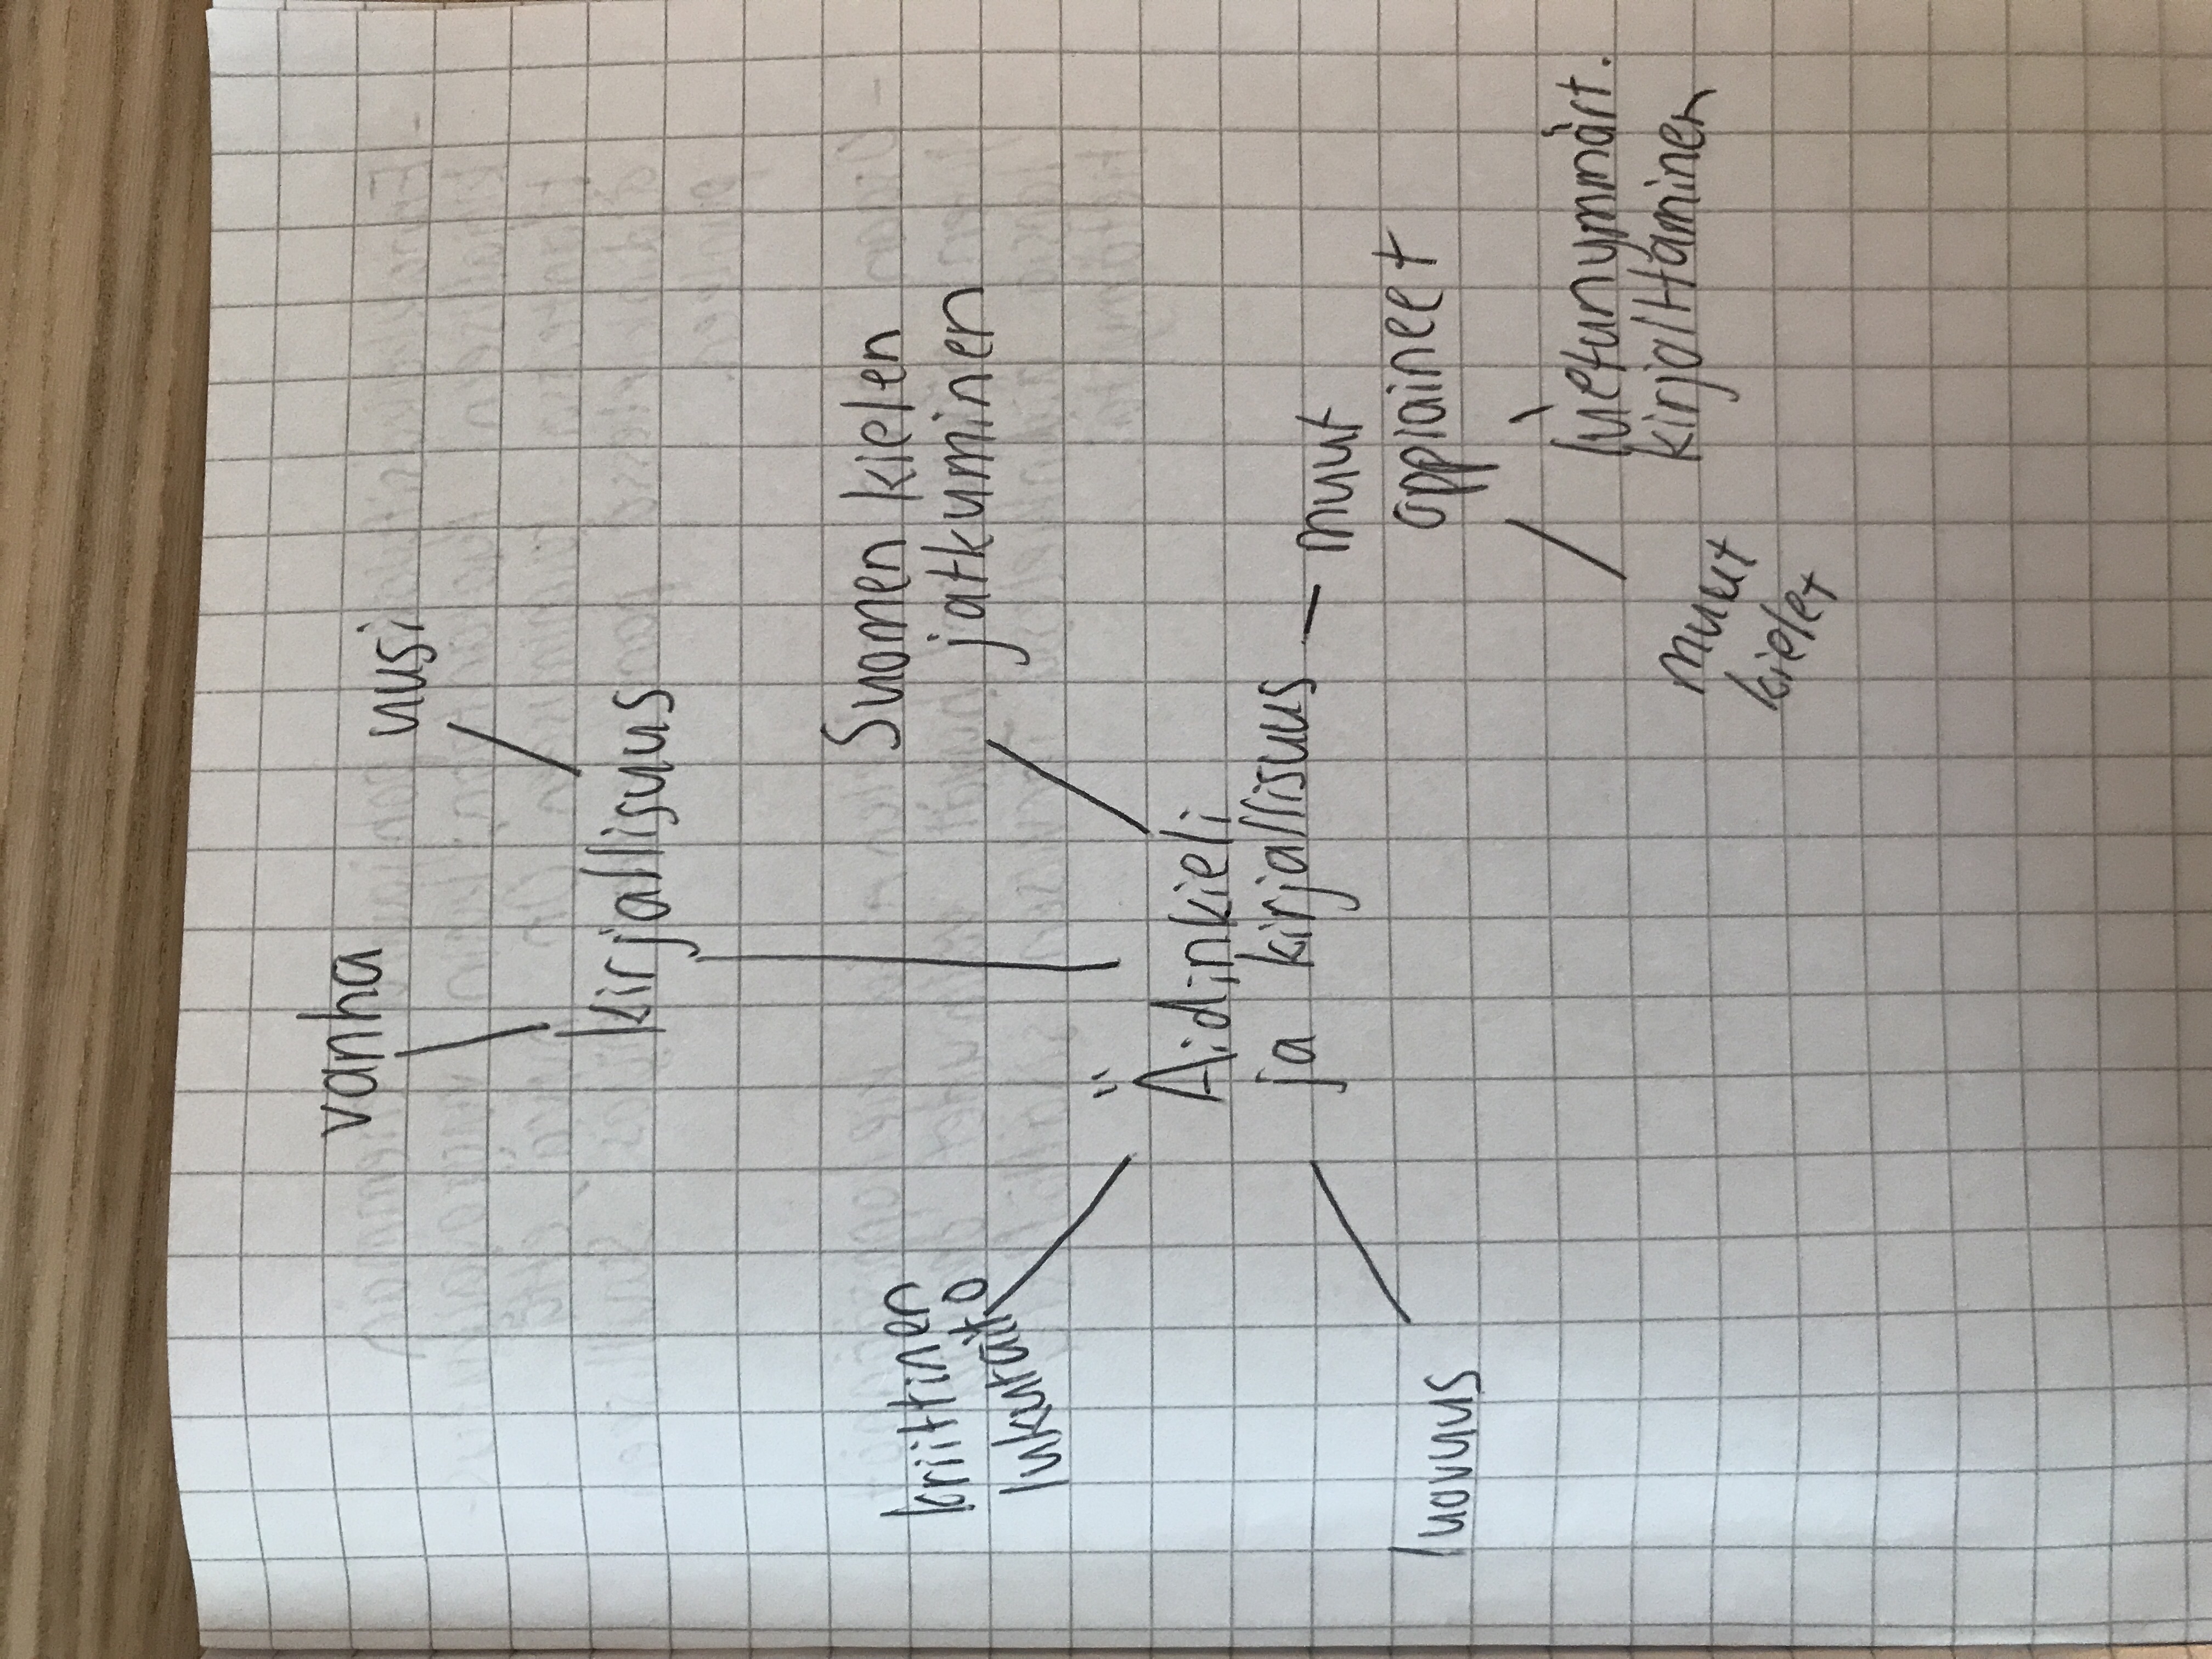 vanha
uusi
kirjallisuus
Suomen kielen
jatkuminen
kriittinen
lukutaito
Äidinkieli
ja kirjallisuus — muut
oppiaineet
luovuus
luetunymmärt.
kirjalttäminen
muut
kielet